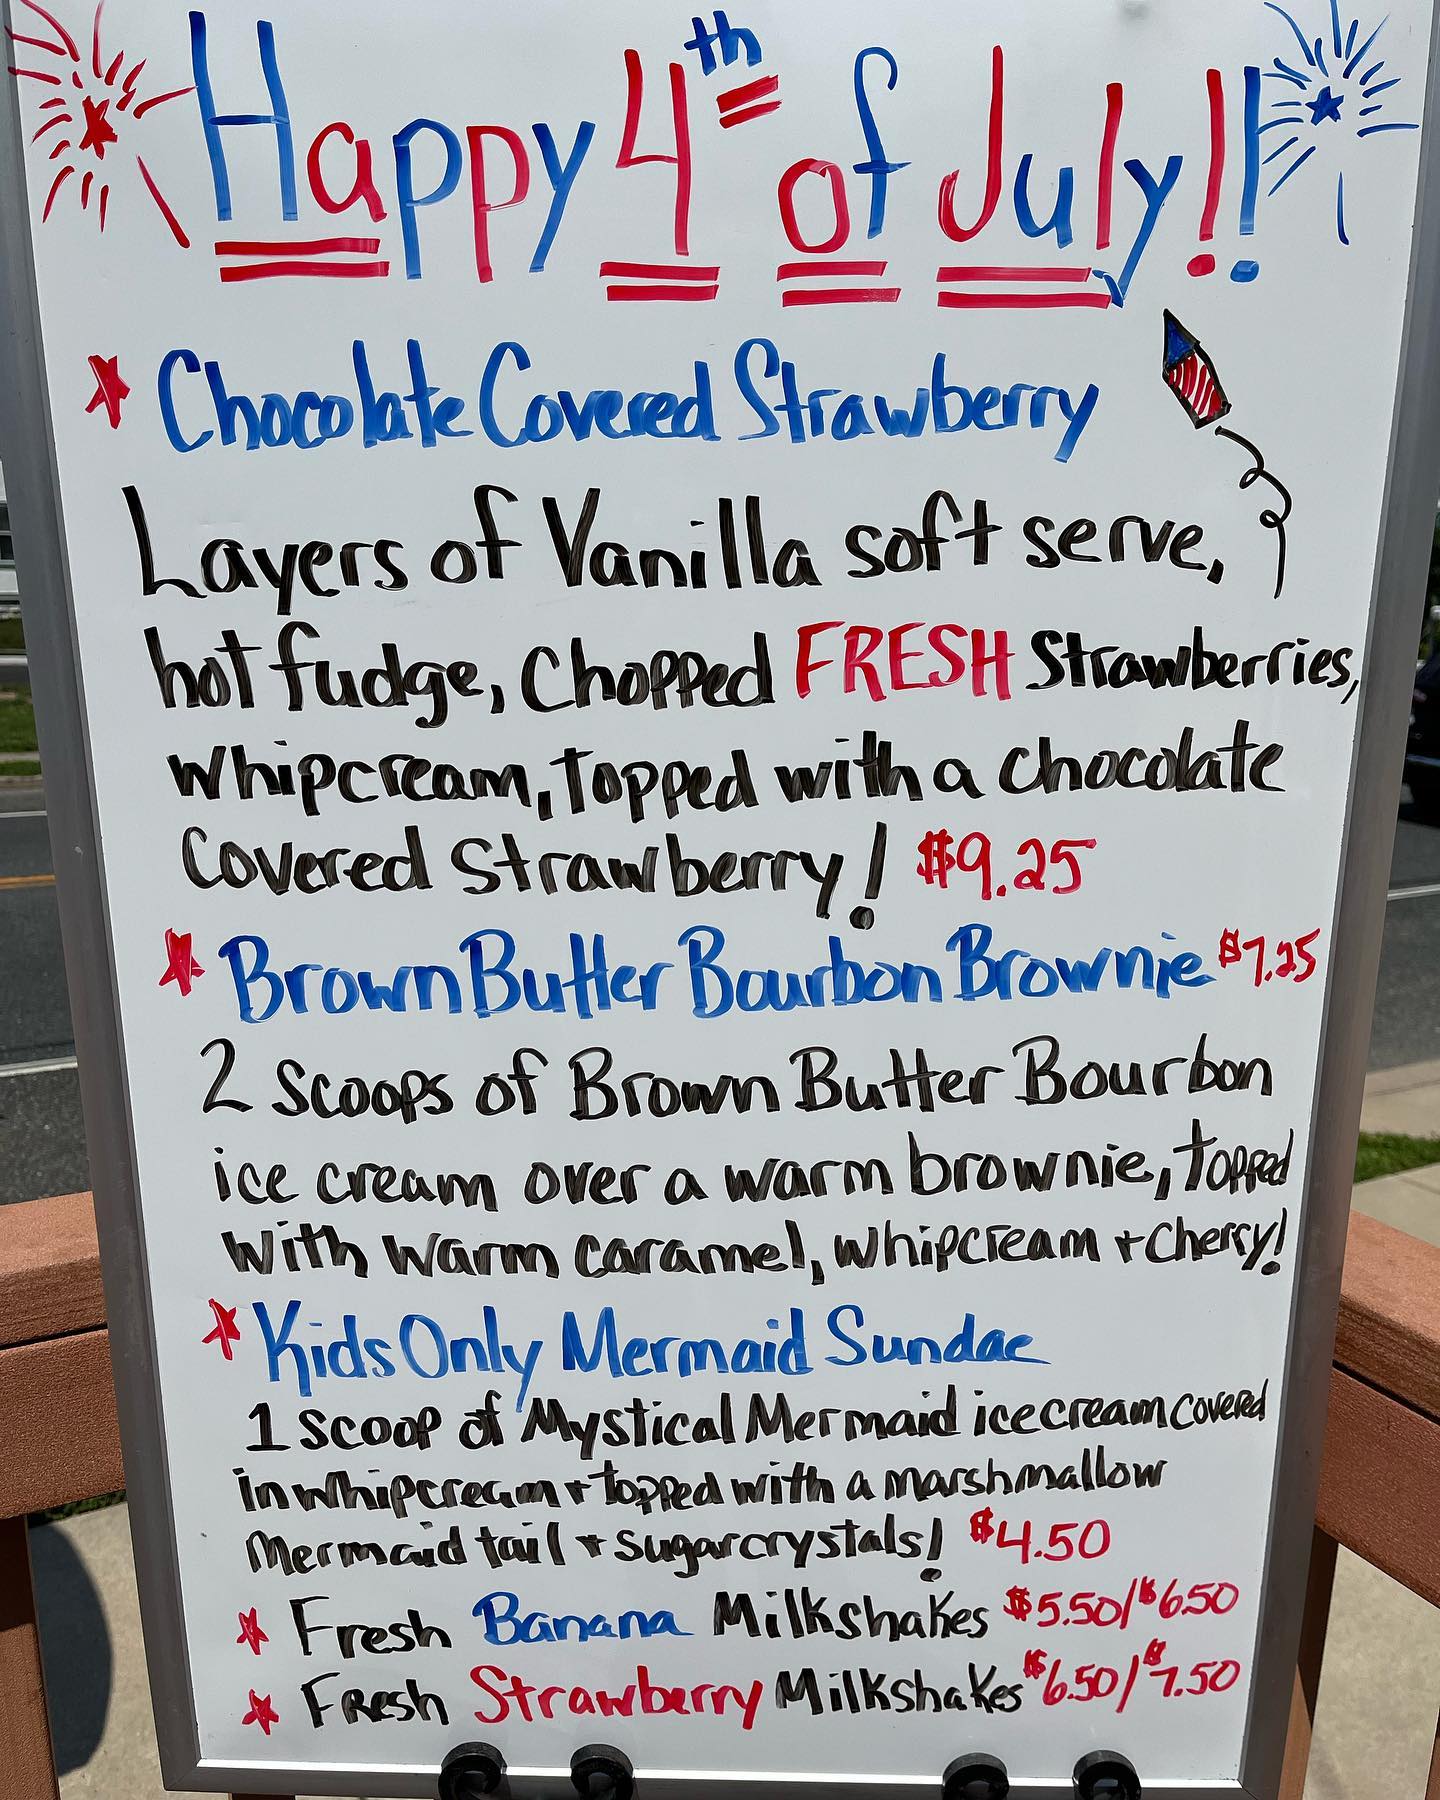 Happy 4th of July!!
Chocolate Covered Strawberry
Layers of Vanilla soft serve,
hot fudge, Chopped FRESH Strawberries,
whipcream, topped with a chocolate
Covered strawberry! $9.25
Brown Butter Bourbon Brownie $7.25
2 scoops of Brown Butter Bourbon
ice cream over a warm brownie, topped
with warm caramel, whipcream + cherry!
Kids Only Mermaid Sundae
1 scoop of Mystical Mermaid ice cream covered
in whipcream + topped with a marshmallow
Mermaid tail + sugar crystals! $4.50
Fresh Banana Milkshakes $5.50/$6.50
Fresh Strawberry Milkshakes $6.50/$7.50